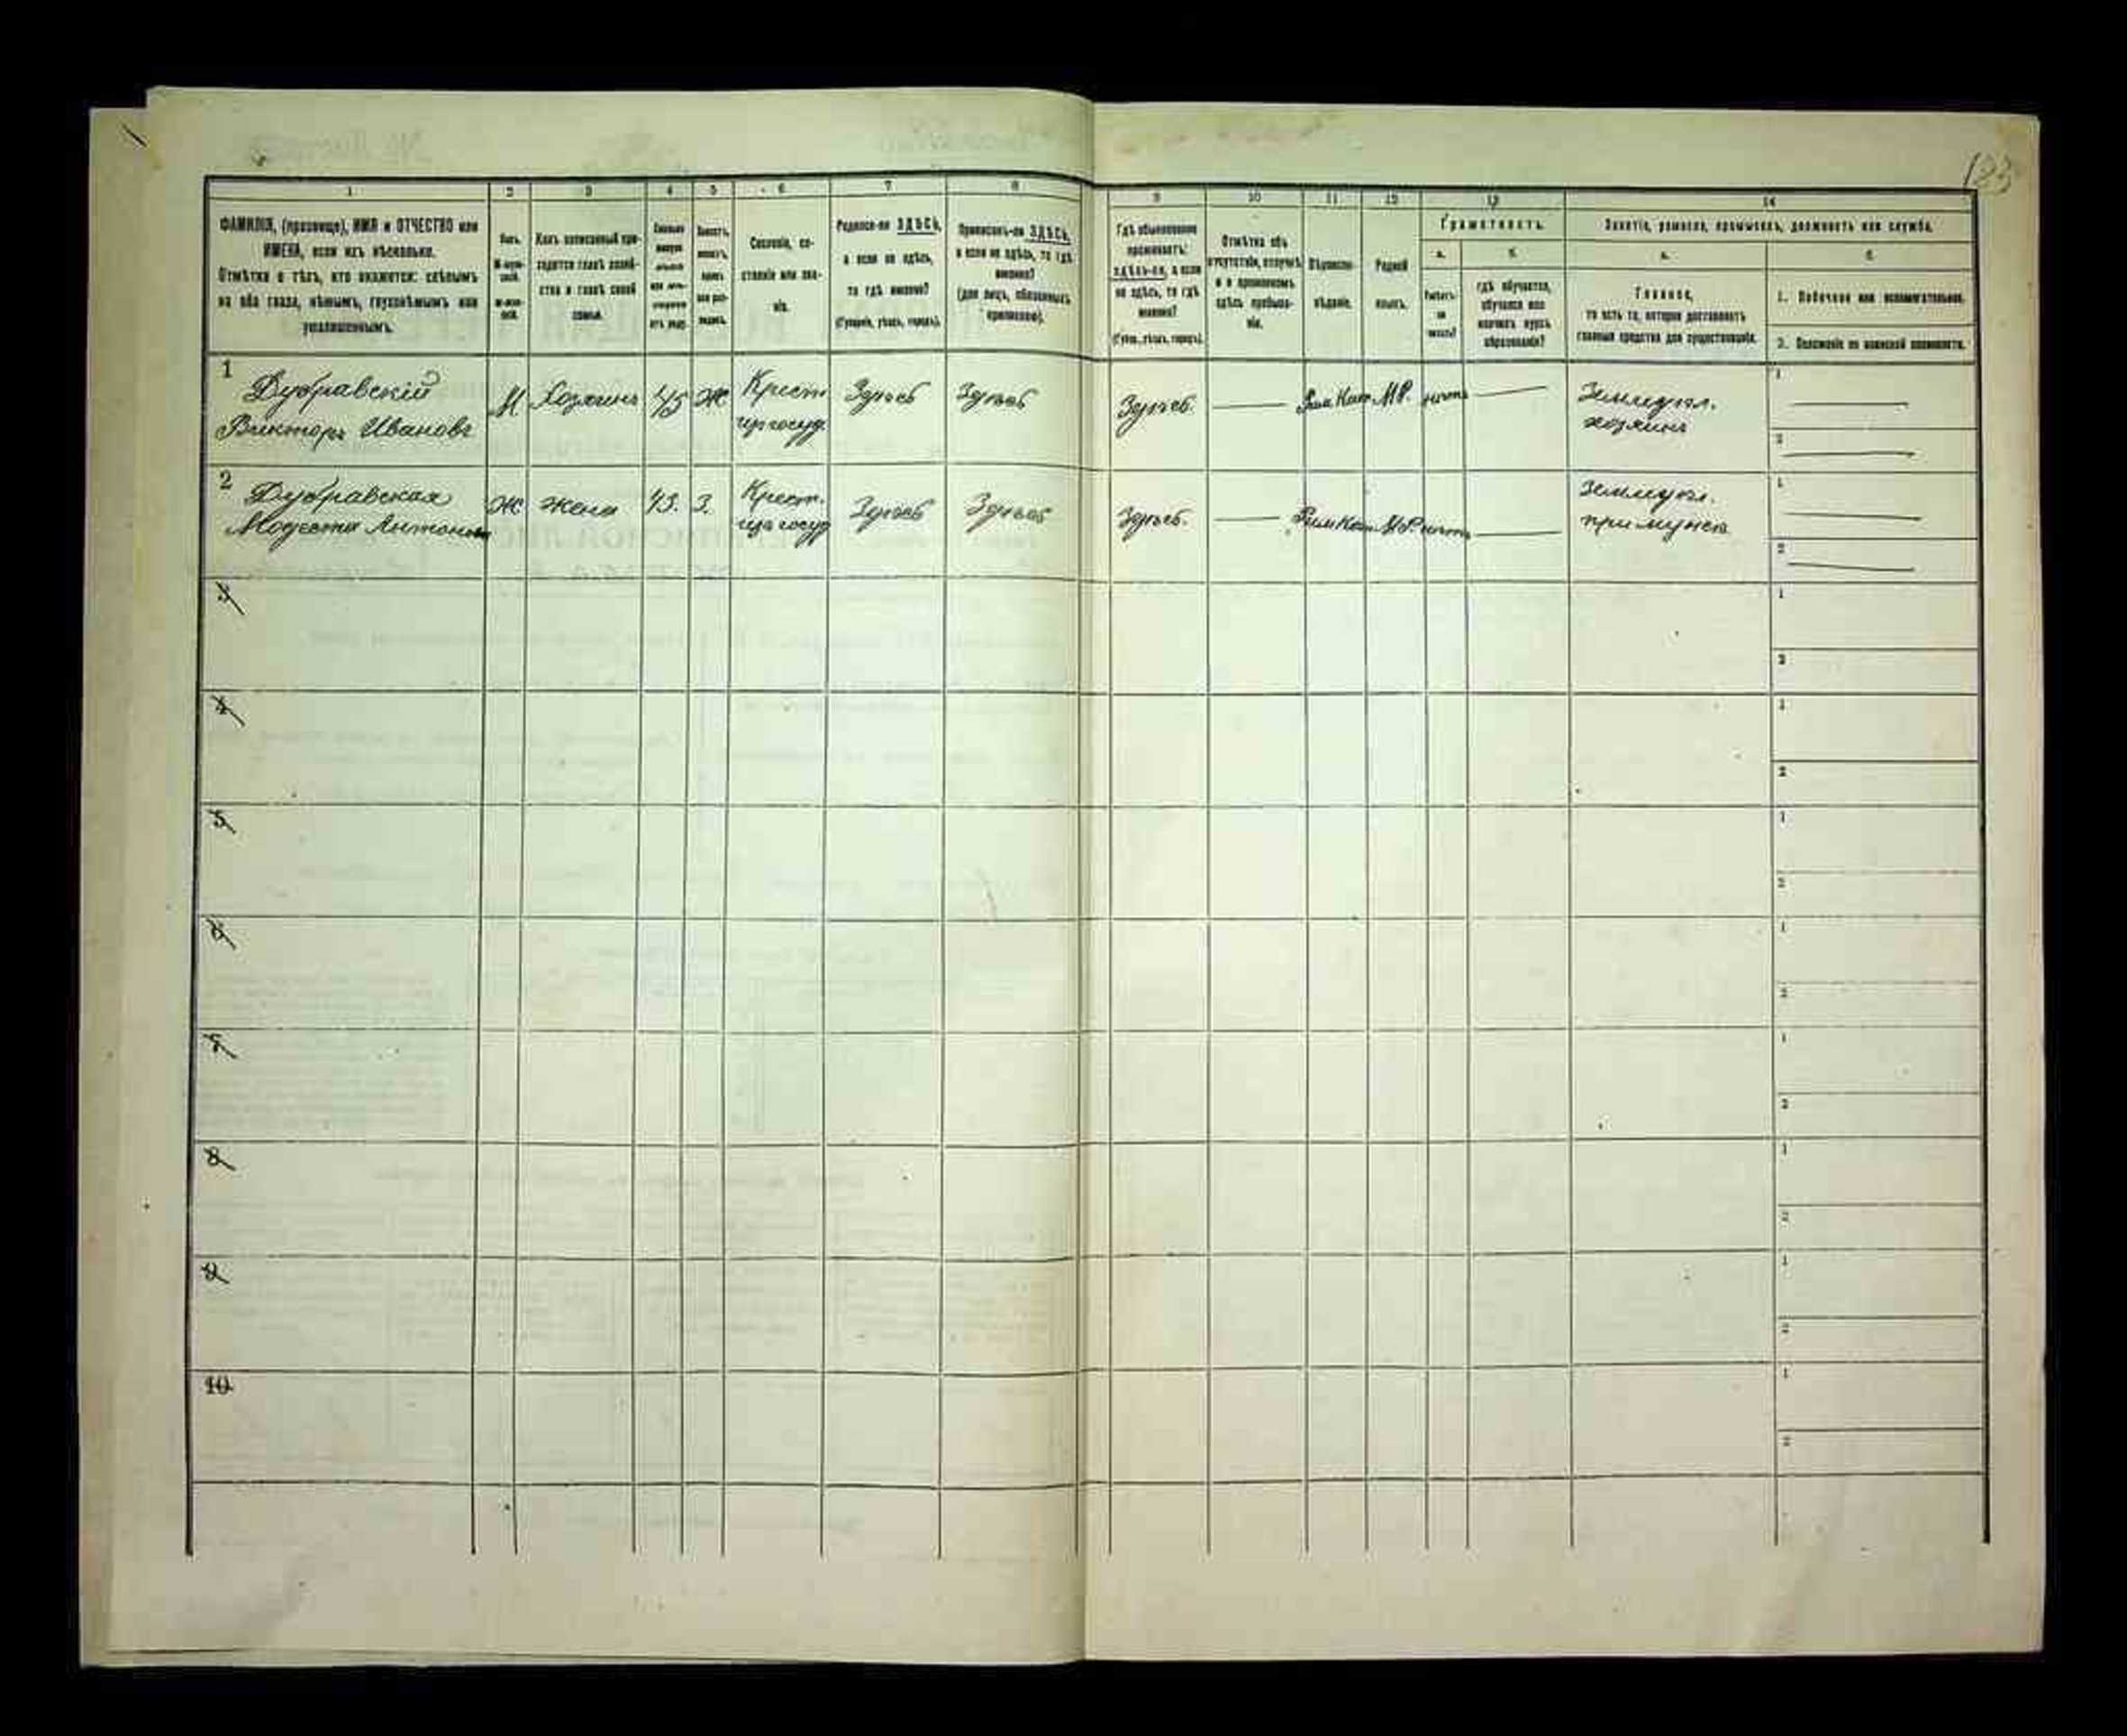 183
1 2 3 4 5 6 7 8 9 10 11 12 13 14
ФАМИЛІЯ, (прозвище), ИМЯ и ОТЧЕСТВО или
ИМЕНА, если ихъ нѣсколько.
Отмѣтка о тѣхъ, кто окажется: слѣпымъ
на оба глаза, нѣмымъ, глухонѣмымъ или
умалишеннымъ.
Полъ.
Какъ записанный при-
ходится главѣ хозяй-
ства и главѣ своей
семьи.
Сословіе, со-
стояніе или зва-
ніе.
Родился-ли ЗДѢСЬ,
а если не здѣсь,
то гдѣ именно?
(Губернія, уѣздъ, городъ).
Приписанъ-ли ЗДѢСЬ,
а если не здѣсь, то гдѣ
именно?
(для лицъ, обязанныхъ
припискою).
Гдѣ обыкновенно
проживаетъ:
здѣсь-ли, а если
не здѣсь, то гдѣ
именно?
(Губ., уѣздъ, городъ).
Отмѣтка объ
отсутствіи, отлучкѣ
и о временномъ
здѣсь пребыва-
ніи.
Вѣроиспо-
вѣданіе.
Родной
языкъ.
Грамотность.
а.
Умѣетъ-
ли
читать?
б.
гдѣ обучается,
обучался или
кончилъ курсъ
образованія?
Занятіе, ремесло, промыселъ, должность или служба.
а.
Главное,
то есть то, которое доставляетъ
главныя средства для существованія.
б.
1. Побочное или вспомогательное.
2. Положеніе по воинской повинности.
1 Дубравскій
Викторъ Ивановъ
М Хозяинъ 45 Ж
Крест
Здѣсь Здѣсь Здѣсь. Рим Кат М.Р. нѣтъ
Земледѣл.
хозяинъ
1
2
2 Дубравская
Модеста Антонова
Ж жена 43. З.
Крест.
Здѣсь Здѣсь Здѣсь. Рим Кат М.Р. нѣтъ
Земледѣл.
при мужѣ
1
2
3 1
2
4 1
2
5 1
2
6 1
2
7 1
2
8 1
2
9 1
2
10 1
2